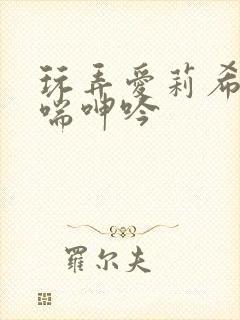 玩弄愛莉希
喘呻吟
羅尔夫